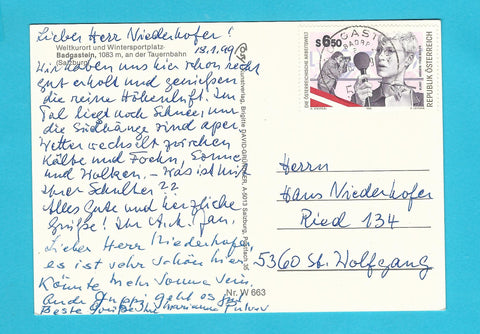 Lieber Herr Niederhofer!
Weltkurort und Wintersportplatz
Badgastein, 1083 m, an der Tauernbahn
(Salzburg)
13.1.99
Wir haben uns hier schon recht
gut erholt und genießen
die reine Höhenluft. Im
Tal liegt noch Schnee, nur
die Südhänge sind aper
Wetter wechselt zwischen
Kälte und Föhn, Sonne
und Wolken. – Was ist mit
Ihrer Schulter ??
Alles Gute und herzliche
Grüße! Ihr
Lieber Herr Niederhofer,
es ist sehr schön hier
Könnte mehr Sonne sein.
geht es gut
Beste Grüße Ihre Marianne
Nr. W 663
S 6.50
DIE ÖSTERREICHISCHE ARBEITSWELT
REPUBLIK ÖSTERREICH
Herrn
Hans Niederhofer
Ried 134
5360 St. Wolfgang